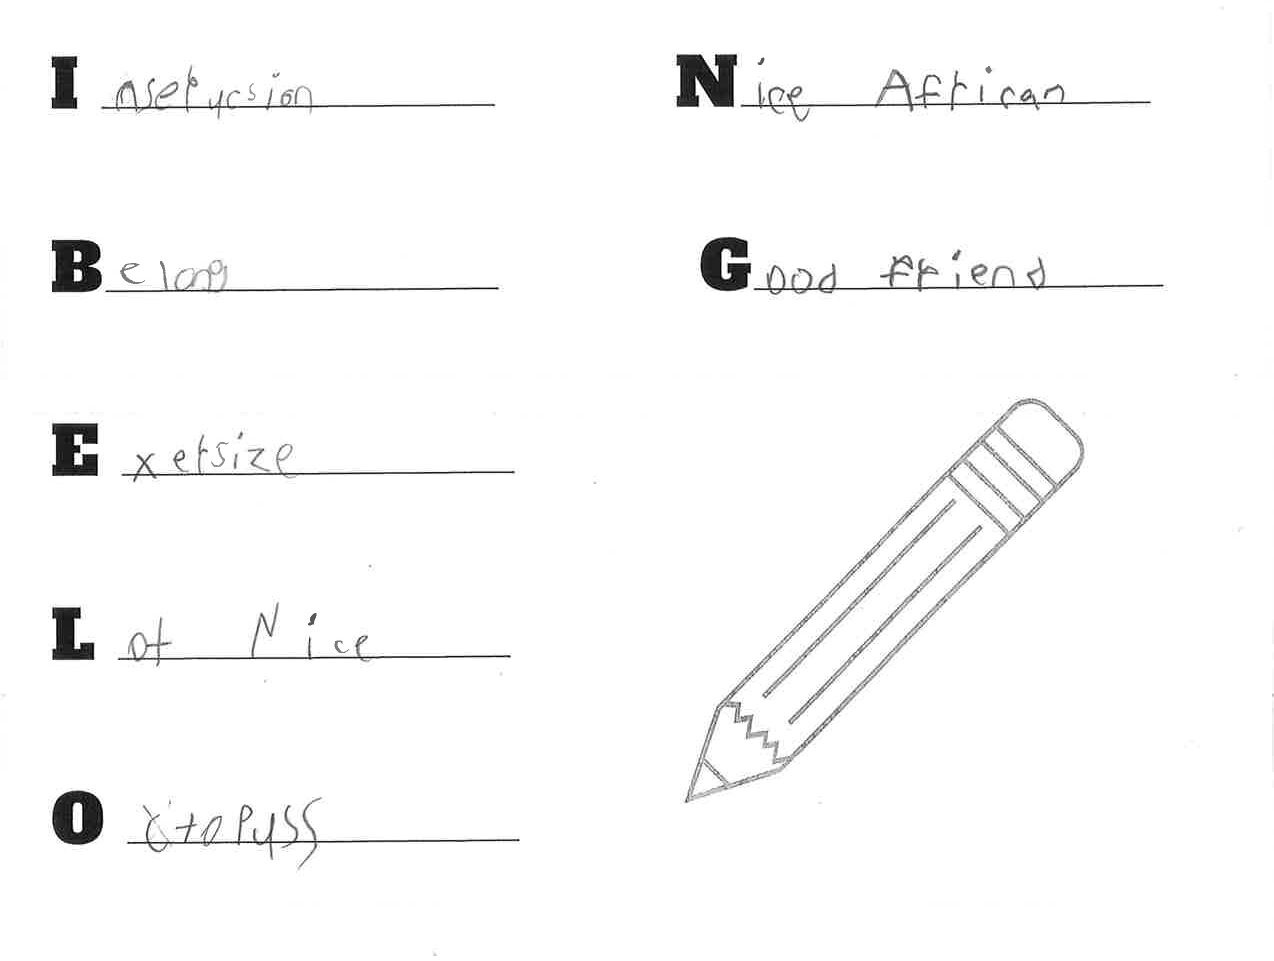 Inserycsion
Belong
Exersize
Lot Nice
Octopyss
Nice African
Good friend